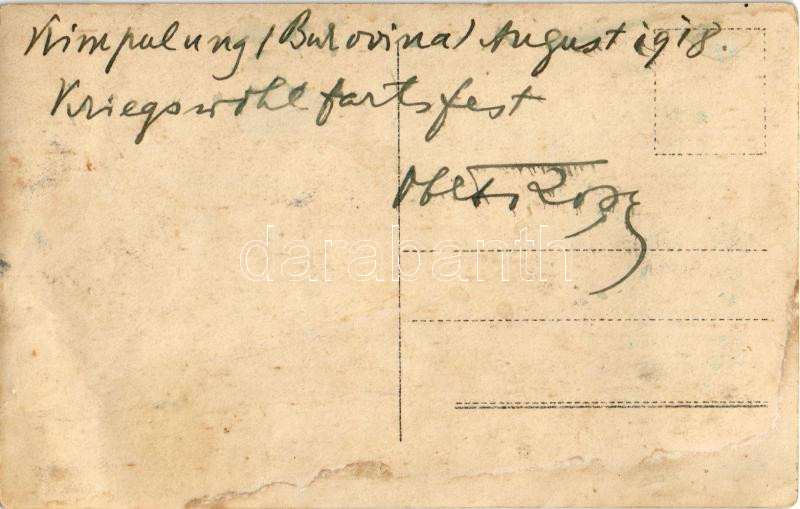 Kimpolung (Bukovina) August 1918.
Kriegswohlfartsfest
Oblt
darabanth